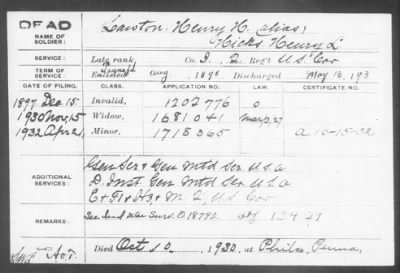 DEAD
NAME OF SOLDIER:
Lawton, Henry H. (alias)
Hicks Henry L
SERVICE:
Late rank, Co. I. 2. Reg't U.S. Cav
TERM OF SERVICE:
Enlisted Aug 1891 Discharged May 13, 193
DATE OF FILING. CLASS. APPLICATION NO. LAW. CERTIFICATE NO.
1897 Dec. 15 Invalid, 1202776 0
1930 Nov. 15 Widow, 1681041 Mar 3, 27
1932 Apr 21 Minor, 1718065 a 10-15-32
ADDITIONAL SERVICES:
Gen Ser & Gen Mtd Ser U.S.A
D. Inst Gen Mtd Ser U.S.A
E & F & H & M 2, U.S. Cav
REMARKS:
See Ind War Surv. O 18792
Died Oct 10, 1930, at Phila, Penna,